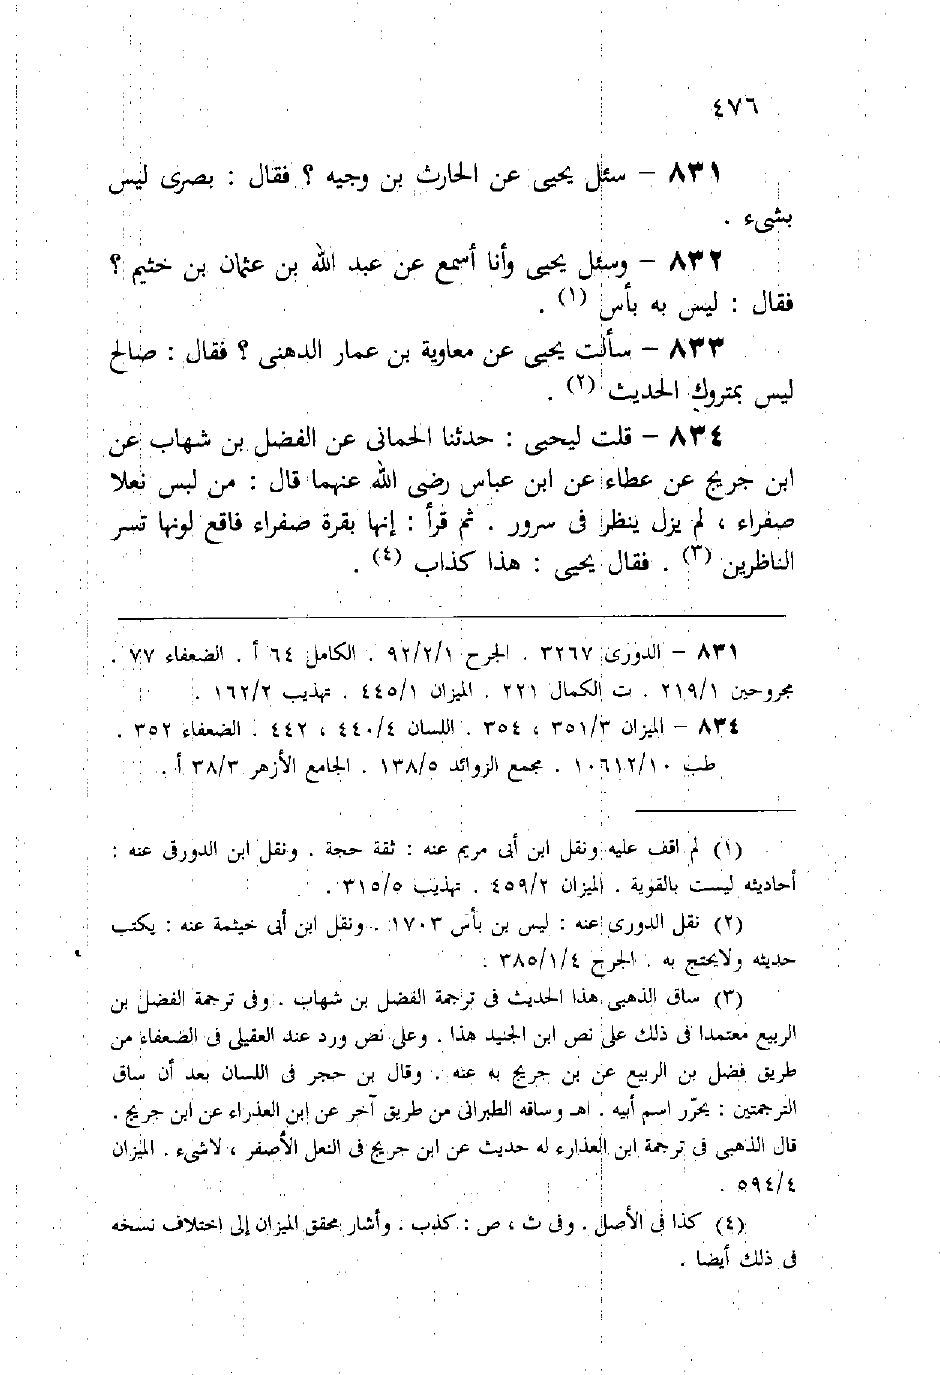 ٤٧٦
٨٣١ – سئل يحيى عن الحارث بن وجيه ؟ فقال : بصرى ليس
بشىء .
٨٣٢ – وسئل يحيى وأنا أسمع عن عبد الله بن عثمان بن خثيم ؟
فقال : ليس به بأس (١) .
٨٣٣ – سألت يحيى عن معاوية بن عمار الدهنى ؟ فقال : صالح
ليس بمتروك الحديث (٢) .
٨٣٤ – قلت ليحيى : حدثنا الحمانى عن الفضل بن شهاب عن
ابن جريج عن عطاء عن ابن عباس رضى الله عنهما قال : من لبس نعلا
صفراء ، لم يزل ينظر فى سرور . ثم قرأ : إنها بقرة صفراء فاقع لونها تسر
الناظرين (٣) . فقال يحيى : هذا كذاب (٤) .
٨٣١ – الدورى ٣٢٦٧ . الجرح ٩٢/٢/١ . الكامل ٦٤ أ . الضعفاء ٧٧ .
مجروحين ٢١٩/١ . ت الكمال ٢٢١ . الميزان ٤٤٥/١ . تهذيب ١٦٢/٢ .
٨٣٤ – الميزان ٣٥١/٣ ، ٣٥٤ . اللسان ٤٤٠/٤ ، ٤٤٢ . الضعفاء ٣٥٢ .
طب ١٠٦١٢/١٠ . مجمع الزوائد ١٣٨/٥ . الجامع الأزهر ٣٨/٣ أ .
(١) لم اقف عليه ونقل ابن أبى مريم عنه : ثقة حجة . ونقل ابن الدورقى عنه :
أحاديثه ليست بالقوية . الميزان ٤٥٩/٢ . تهذيب ٣١٥/٥ .
(٢) نقل الدورى عنه : ليس بن بأس ١٧٠٣ . ونقل ابن أبى خيثمة عنه : يكتب
حديثه ولايحتج به . الجرح ٣٨٥/١/٤ .
(٣) ساق الذهبى هذا الحديث فى ترجمة الفضل بن شهاب . وفى ترجمة الفضل بن
الربيع معتمدا فى ذلك على نص ابن الجنيد هذا . وعلى نص ورد عند العقيلى فى الضعفاء من
طريق فضل بن الربيع عن بن جريج به عنه . وقال بن حجر فى اللسان بعد أن ساق
الترجمتين : يحرّر اسم أبيه . اهـ وساقه الطبرانى من طريق آخر عن إبن العذراء عن ابن جريج .
قال الذهبى فى ترجمة ابن العذارء له حديث عن ابن جريج فى النعل الأصفر ، لاشىء . الميزان
٥٩٤/٤ .
(٤) كذا فى الأصل . وفى ث ، ص : كذب . وأشار محقق الميزان إلى اختلاف نسخه
فى ذلك أيضا .